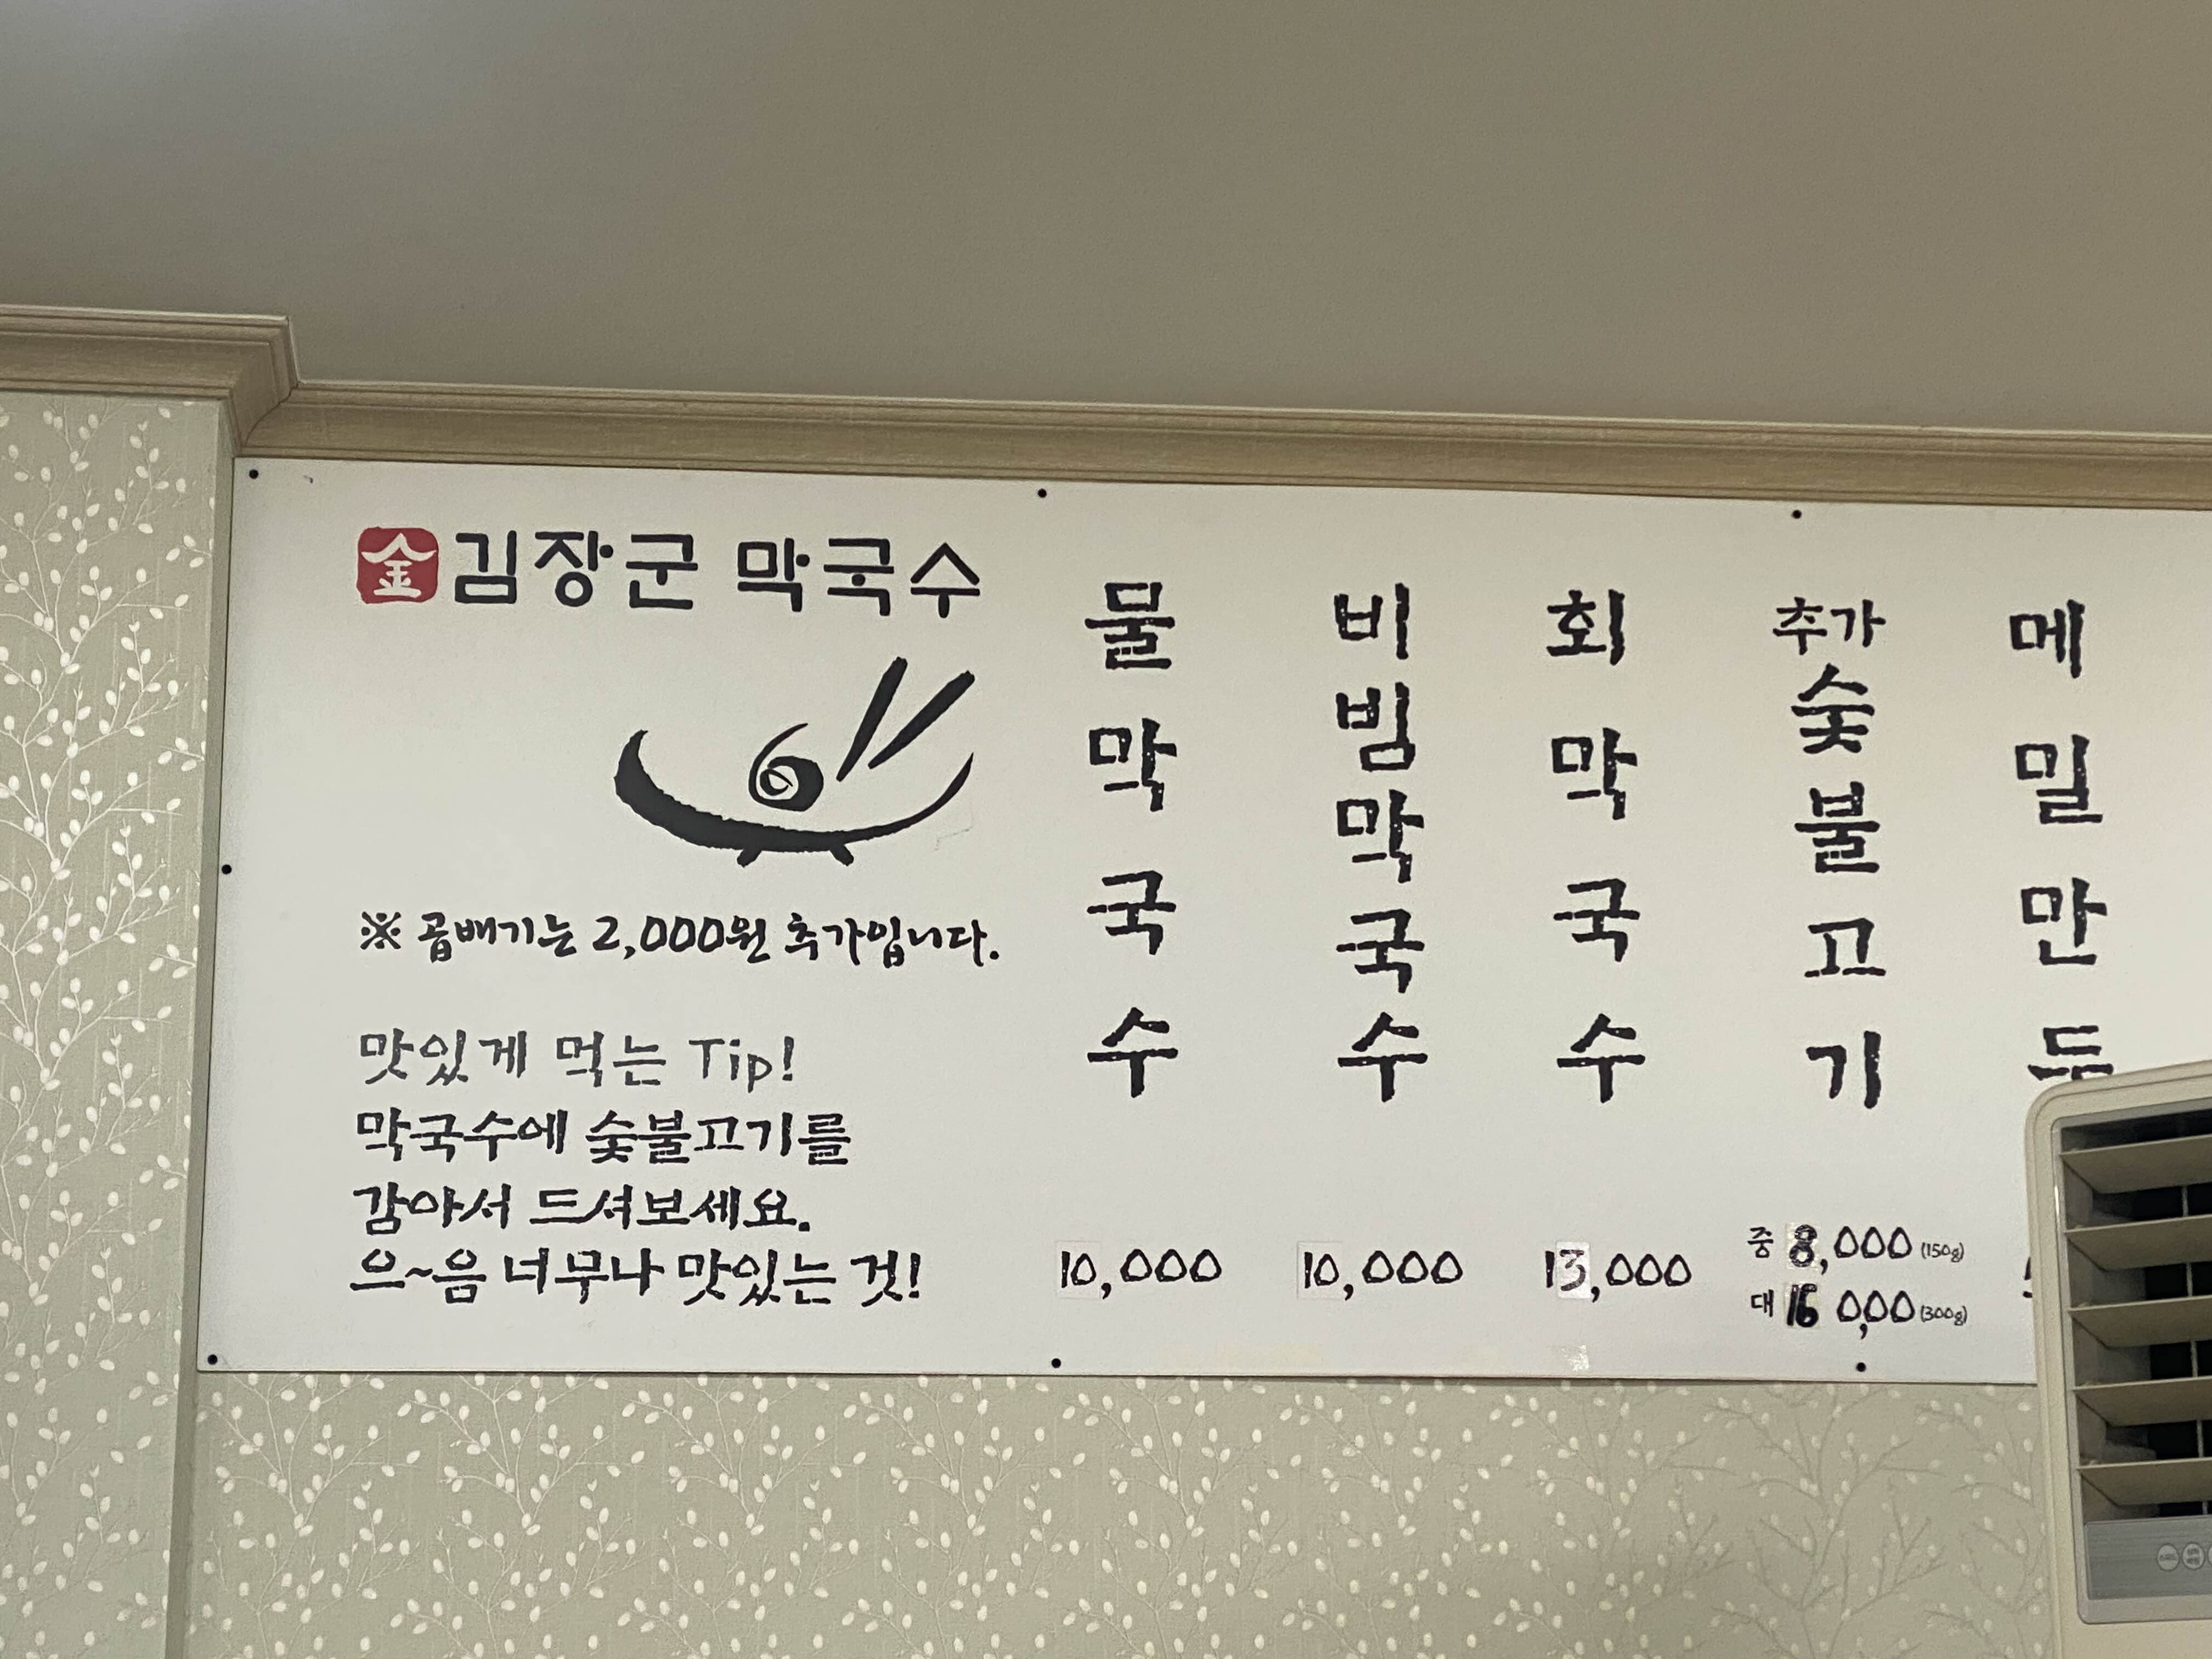 金 김장군 막국수
※ 곱배기는 2,000원 추가입니다.
맛있게 먹는 Tip!
막국수에 숯불고기를
감아서 드셔보세요.
으~음 너무나 맛있는 것!
물막국수
10,000
비빔막국수
10,000
회막국수
13,000
추가
숯불고기
중 8,000 (150g)
대 16,000 (300g)
메밀만두